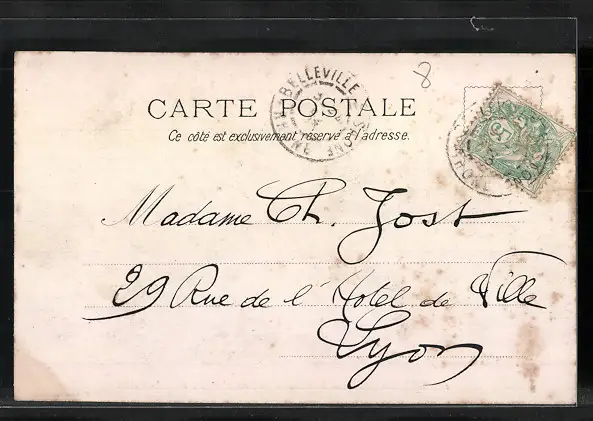 8
BELLEVILLE S. SAONE
RHONE
CARTE POSTALE
Ce côté est exclusivement réservé à l'adresse.
5
RHONE
Madame Ch. Jost
29 Rue de l'Hotel de Ville
Lyon